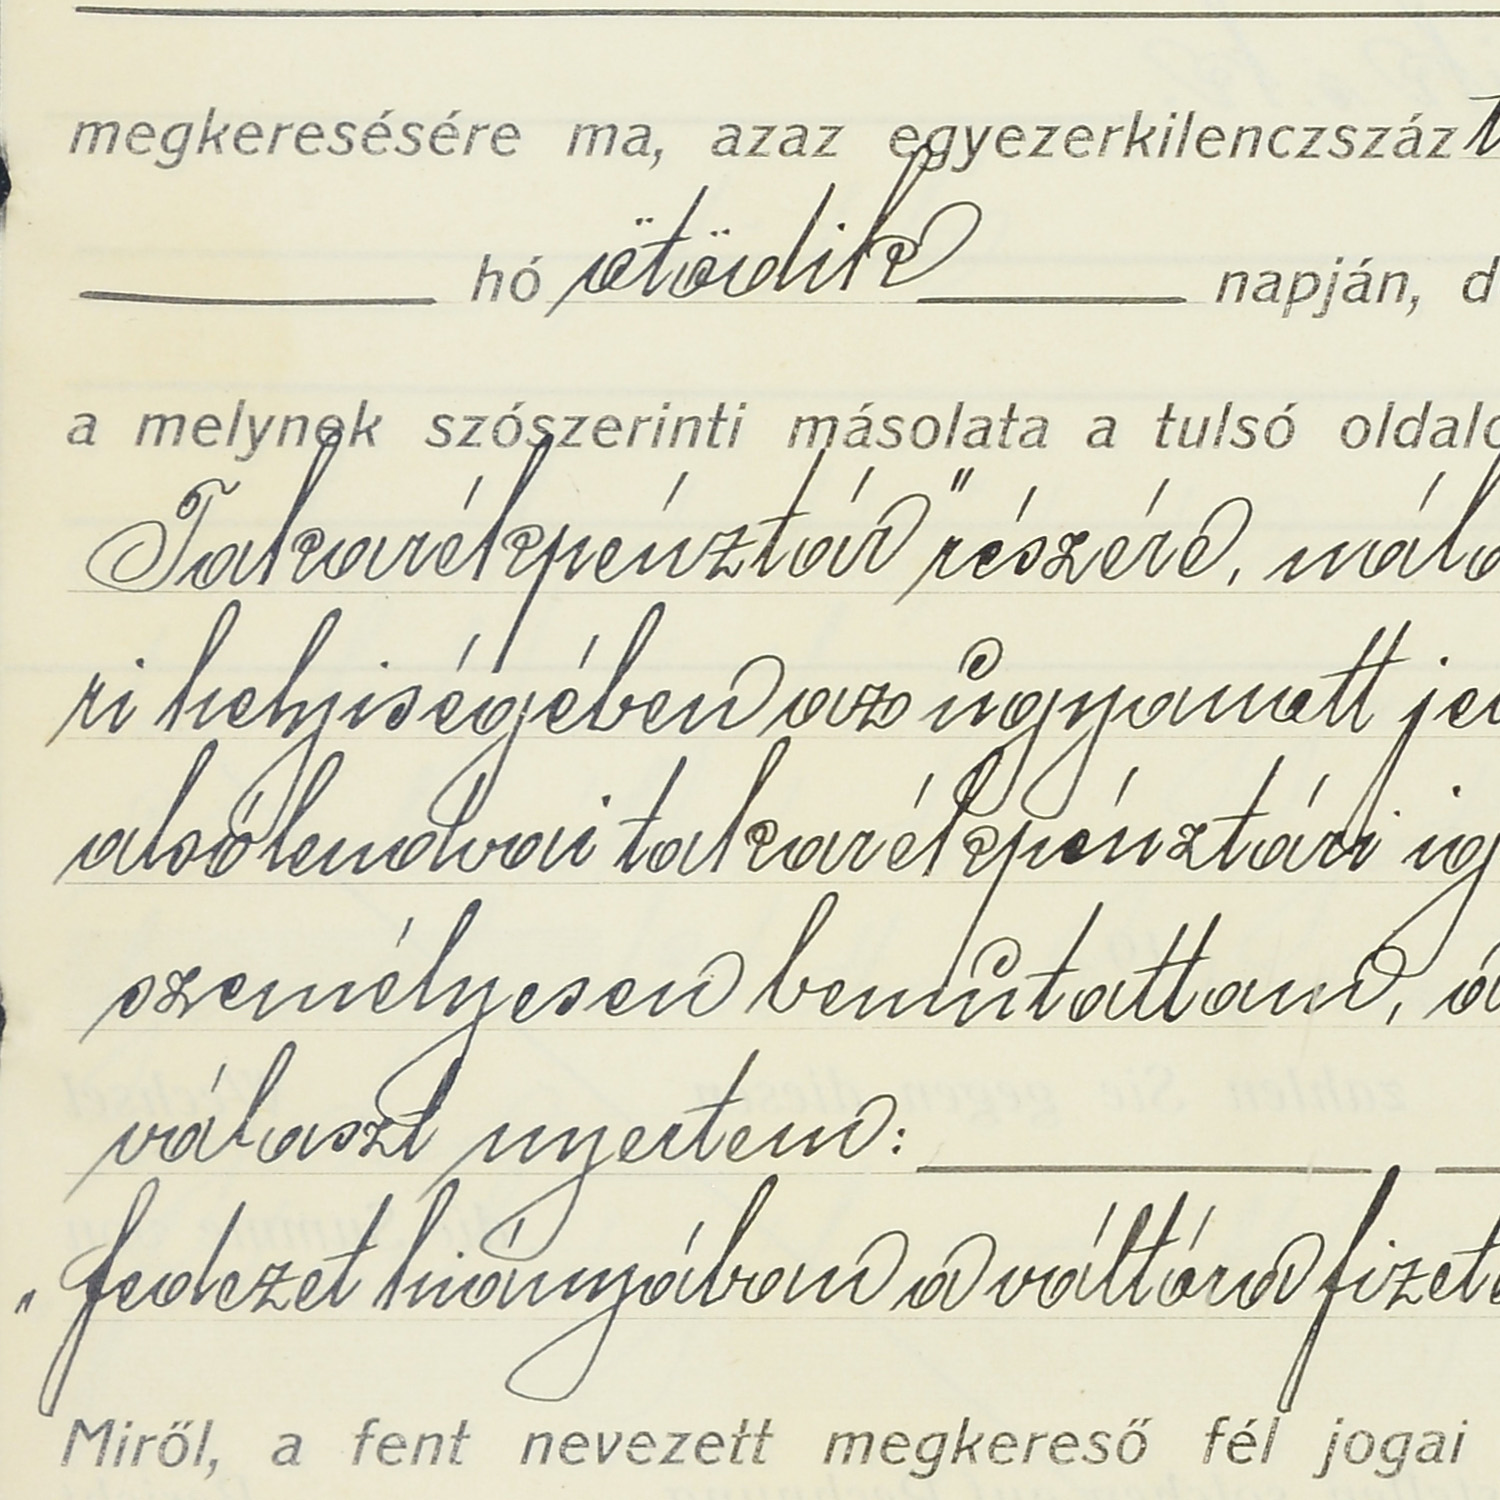 megkeresésére ma, azaz egyezerkilenczszáz
hó ötödik napján, d
a melynek szószerinti másolata a tulsó oldalo
Takarékpénztár" részére, nála
ri helyiségében az ugyanott jen
alsólendvai takarékpénztári ig
személyesen bemutattam, a
választ nyertem:
„fedezet hiányában a váltóra fizeté
Miről, a fent nevezett megkereső fél jogai